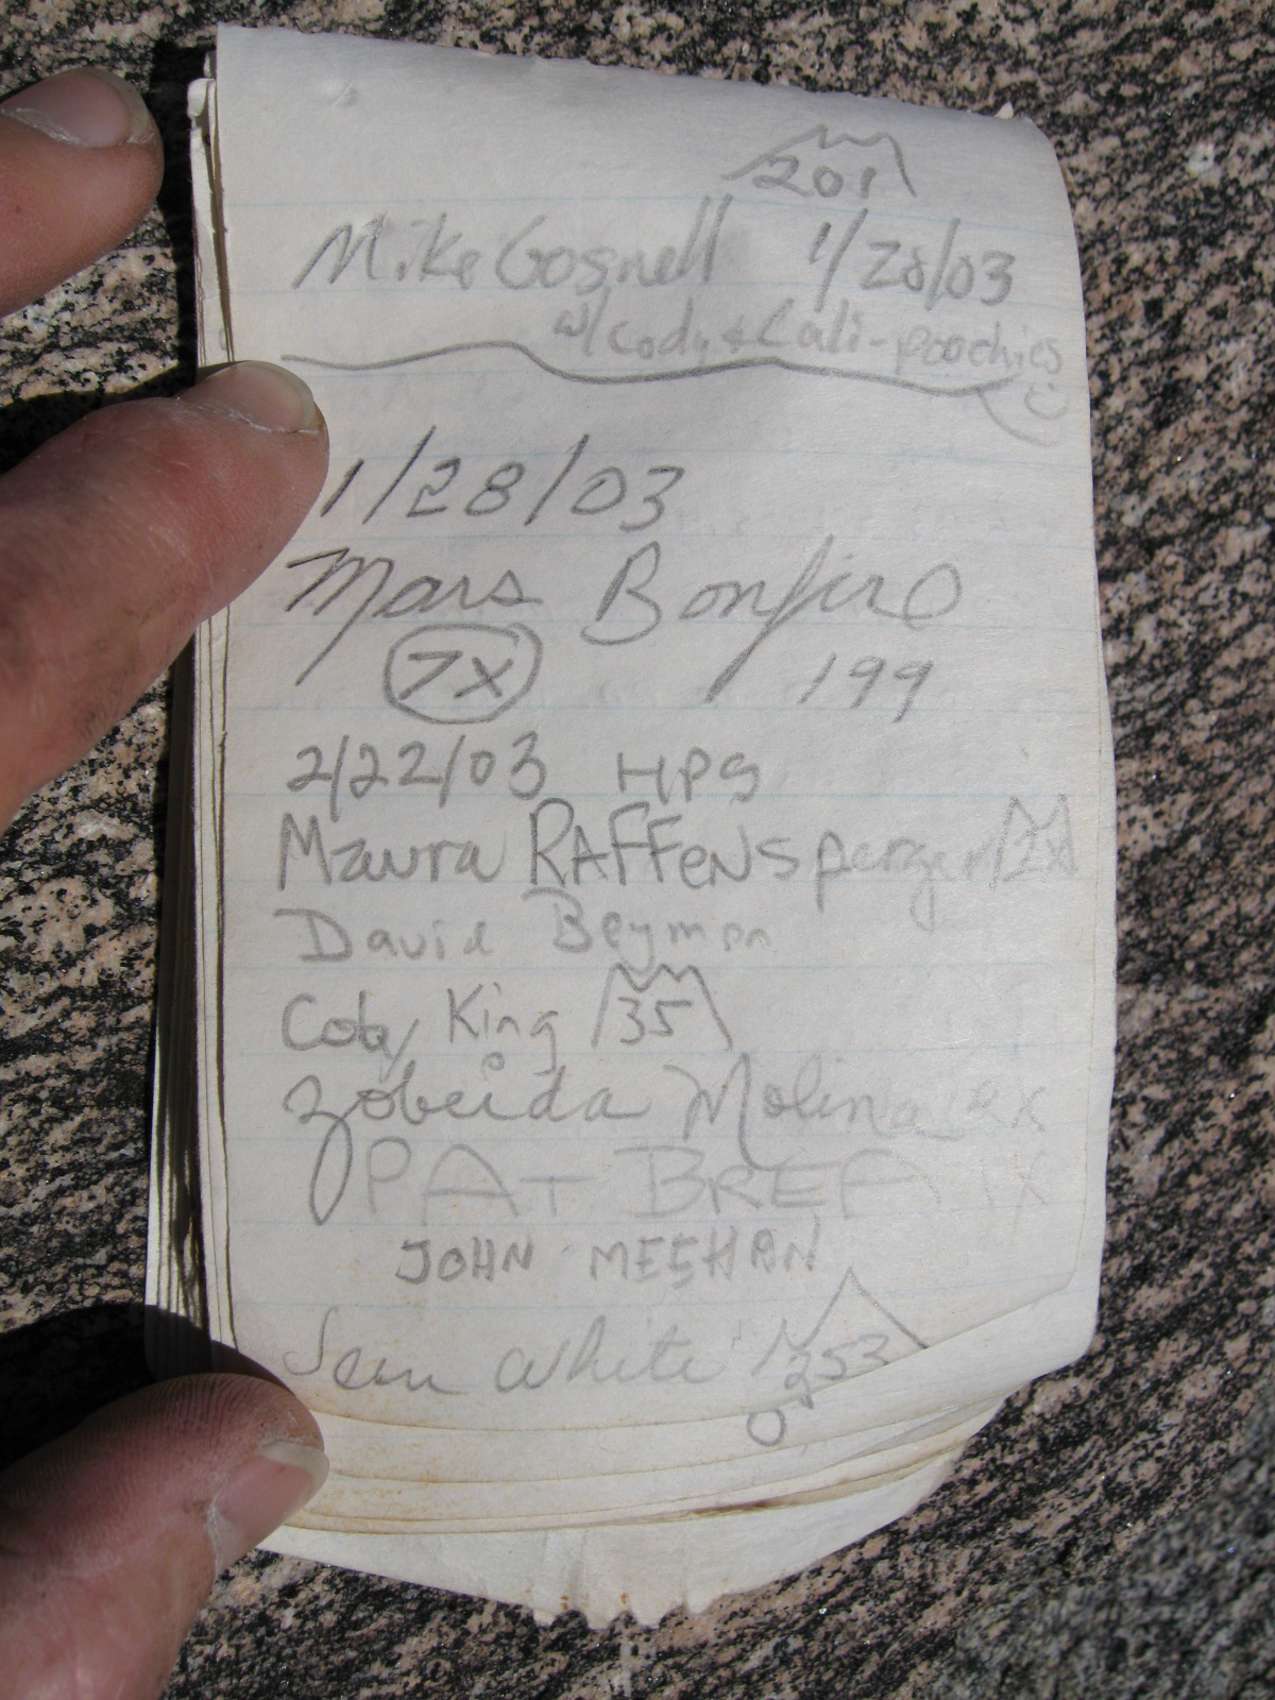 201
Mike Gosnell 1/28/03
w/ Cody & Cali - poochies
1/28/03
Mars Bonfire
7X 199
2/22/03 HPS
Maura RAFFeNsperger 2x
David Beymer
Coby King 35
Zobeida Molina 2x
PAT BREA 1X
JOHN MEEHAN
Sean White 253